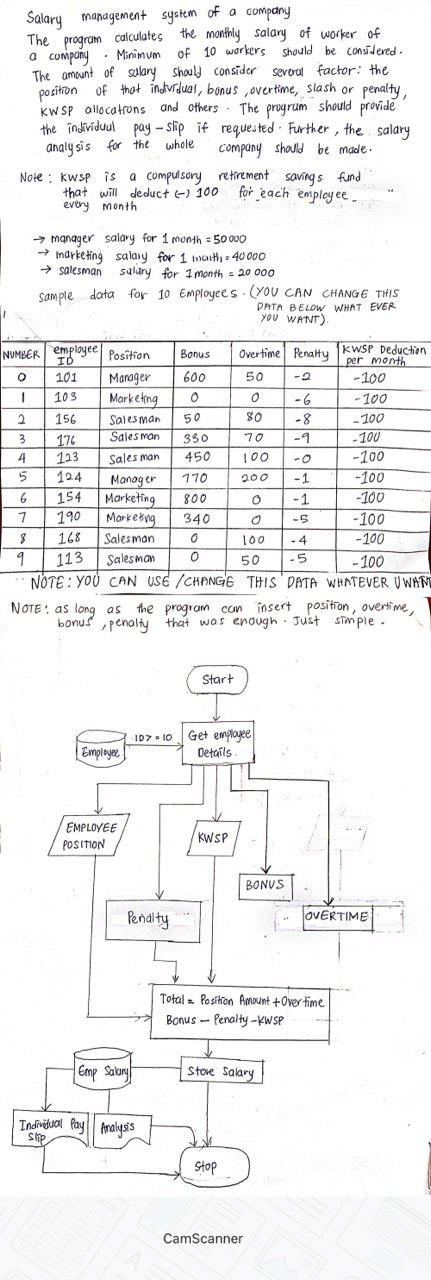 Salary management system of a company
The program calculates the monthly salary of worker of
a company. Minimum of 10 workers should be considered.
The amount of salary should consider several factor: the
position of that individual, bonus, overtime, slash or penalty,
KWSP allocations and others. The program should provide
the individual pay-slip if requested. Further, the salary
analysis for the whole company should be made.
Note: KWSP is a compulsory retirement savings fund
that will deduct (-) 100 for each employee
every month
→ manager salary for 1 month = 50 000
→ marketing salary for 1 month = 40 000
→ salesman salary for 1 month = 20 000
sample data for 10 Employees. (YOU CAN CHANGE THIS
DATA BELOW WHAT EVER
YOU WANT).
NUMBER employee ID Position Bonus Overtime Penalty KWSP Deduction per month
0 101 Manager 600 50 -2 -100
1 103 Marketing 0 0 -6 -100
2 156 Salesman 50 80 -8 -100
3 176 Salesman 330 70 -9 -100
4 123 Salesman 450 100 -0 -100
5 124 Manager 770 200 -1 -100
6 154 Marketing 800 0 -1 -100
7 190 Marketing 340 0 -5 -100
8 168 Salesman 0 100 -4 -100
9 113 Salesman 0 50 -5 -100
NOTE: YOU CAN USE /CHANGE THIS DATA WHATEVER U WANT
NOTE: as long as the program can insert position, overtime,
bonus, penalty that was enough. Just simple.
Start
Employee
ID>=10
Get employee
Details.
EMPLOYEE
POSITION
KWSP
BONUS
Penalty
OVERTIME
Total = Position Amount + Overtime
Bonus - Penalty - KWSP
Emp Salary
Store Salary
Individual Pay
Slip
Analysis
Stop
CamScanner